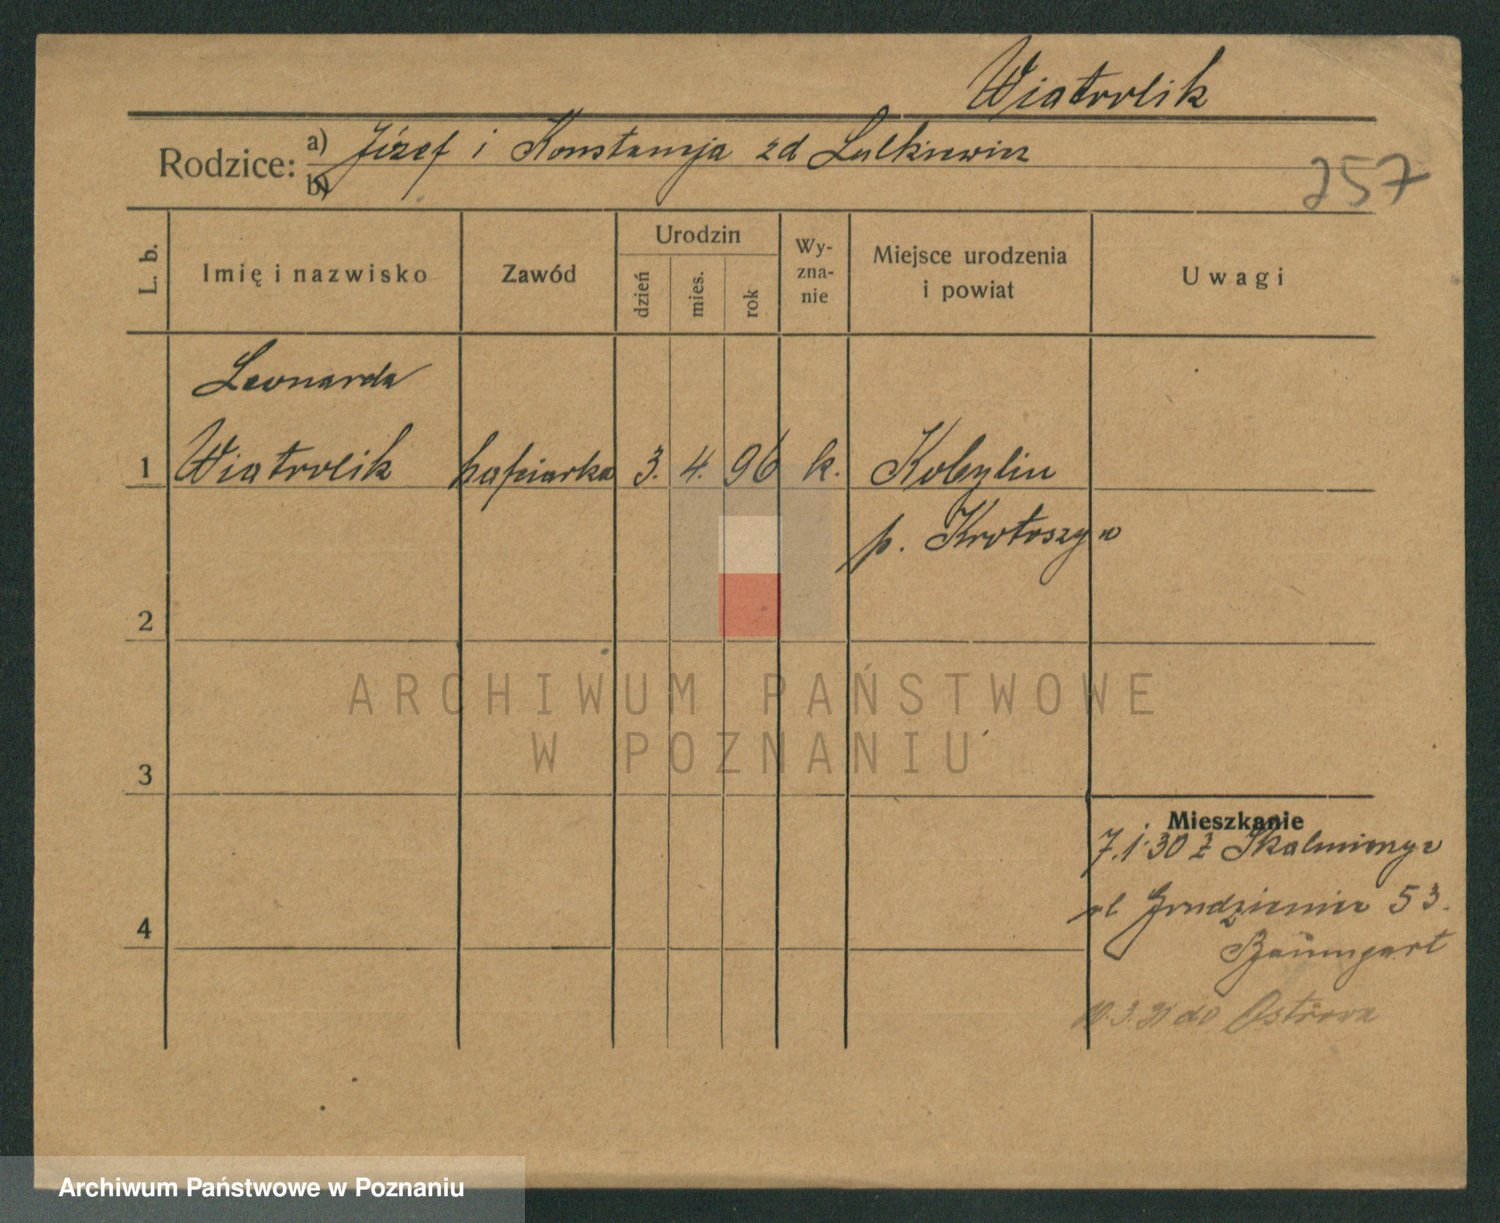 Wiatrolik
Rodzice: a) Józef i Konstancja zd Lulkiewicz
b)
257
L. b.
Imię i nazwisko
Zawód
Urodzin
dzień
mies.
rok
Wy-
zna-
nie
Miejsce urodzenia
i powiat
Uwagi
Leonarda
1 Wiatrolik hafciarka 3. 4. 96 k. Kobylin
p. Krotoszyn
2
3
4
ARCHIWUM PAŃSTWOWE
W POZNANIU
Mieszkanie
7.1.30 z Skalmierzyc
ul Grudzieniec 53.
Baumgart
10.3.31 do Ostrowa
Archiwum Państwowe w Poznaniu